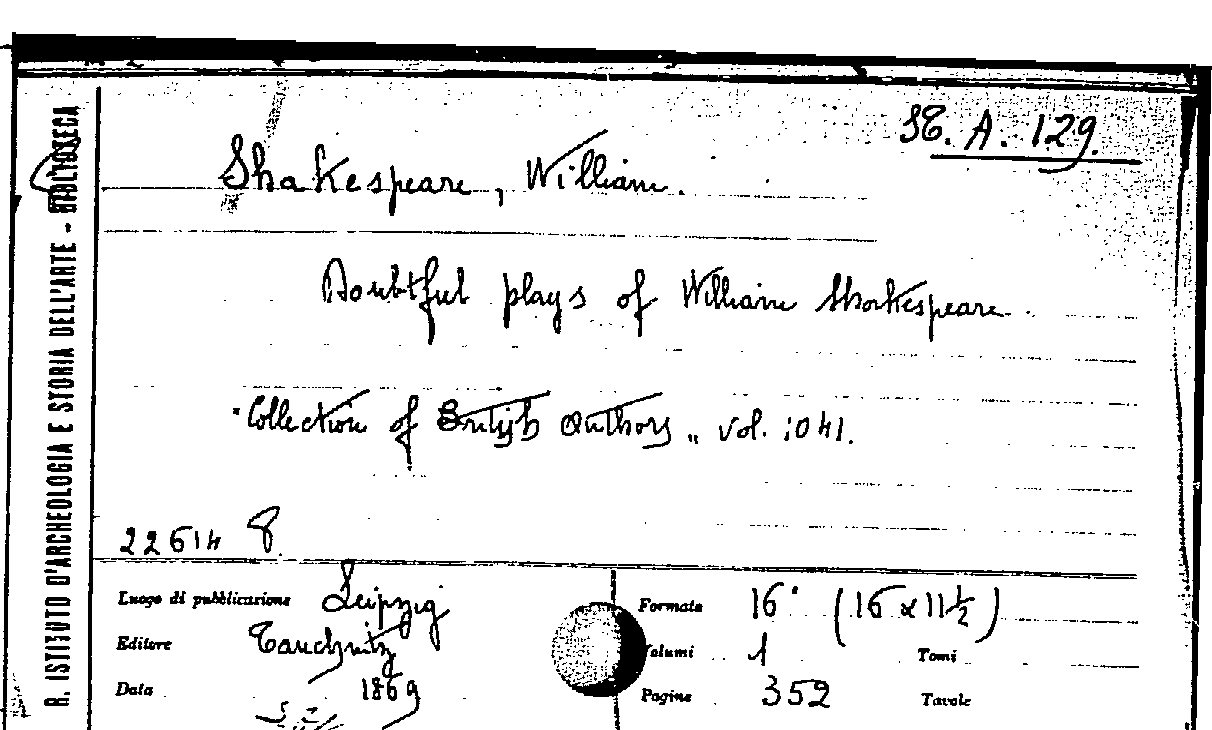 R. ISTITUTO D'ARCHEOLOGIA E STORIA DELL'ARTE - BIBLIOTECA
A. 129.
Shakespeare, William.
Doubtful plays of William Shakespeare.
"Collection of British Authors„ vol. 1041.
22614 8.
Luogo di pubblicazione Leipzig
Editore Tauchnitz
Data 1869
Formato 16° (16 x 11 ½)
Volumi 1 Tomi
Pagine 352 Tavole